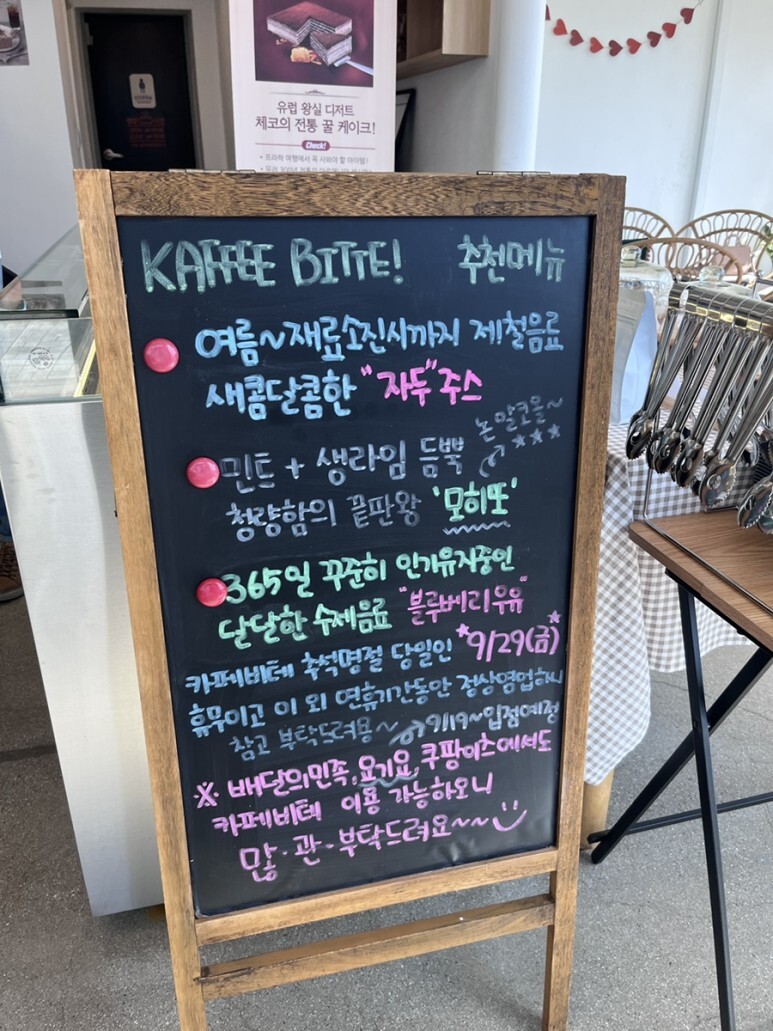 유럽 왕실 디저트
체코의 전통 꿀 케이크!
Check!
• 프라하 여행에서 꼭 사와야 할 아이템!
KAFFEE BITTE! 추천메뉴
여름~재료소진시까지 제철음료
새콤달콤한 "자두"주스
논알코올~
민트 + 생라임 듬뿍
청량함의 끝판왕 '모히또'
365일 꾸준히 인기유지중인
달달한 수제음료 "블루베리우유"
카페비테 추석명절 당일인 *9/29(금)*
휴무이고 이 외 연휴기간동안 정상영업하니
참고 부탁드려용~ 9/19~입점예정
※ 배달의민족, 요기요, 쿠팡이츠에서도
카페비테 이용 가능하오니
많·관·부탁드려요~~